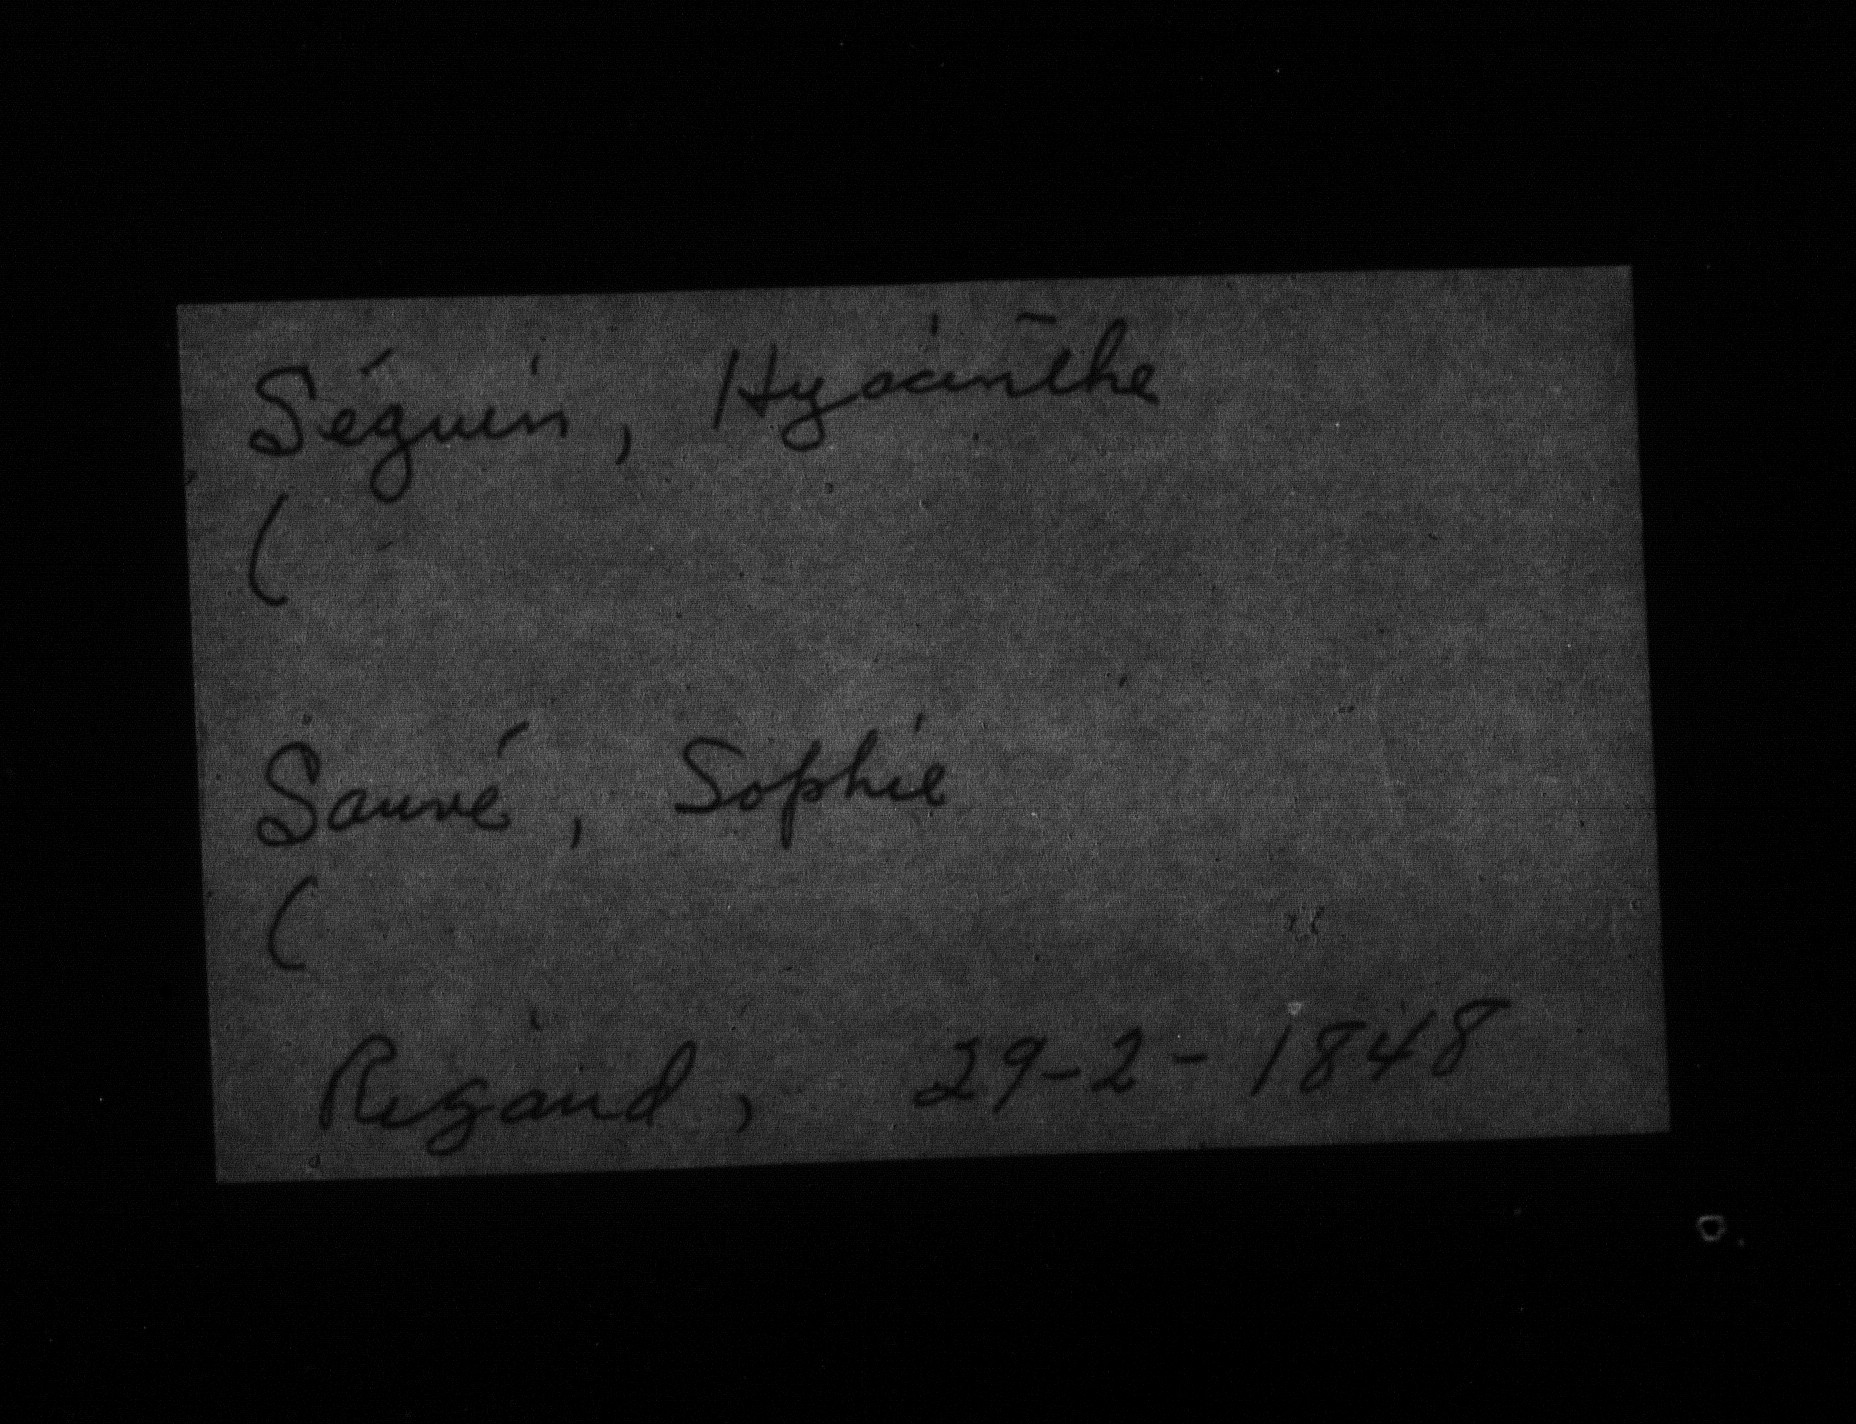 Séguin, Hyacinthe
(
Sauvé, Sophie
(
Rigaud, 29-2-1848